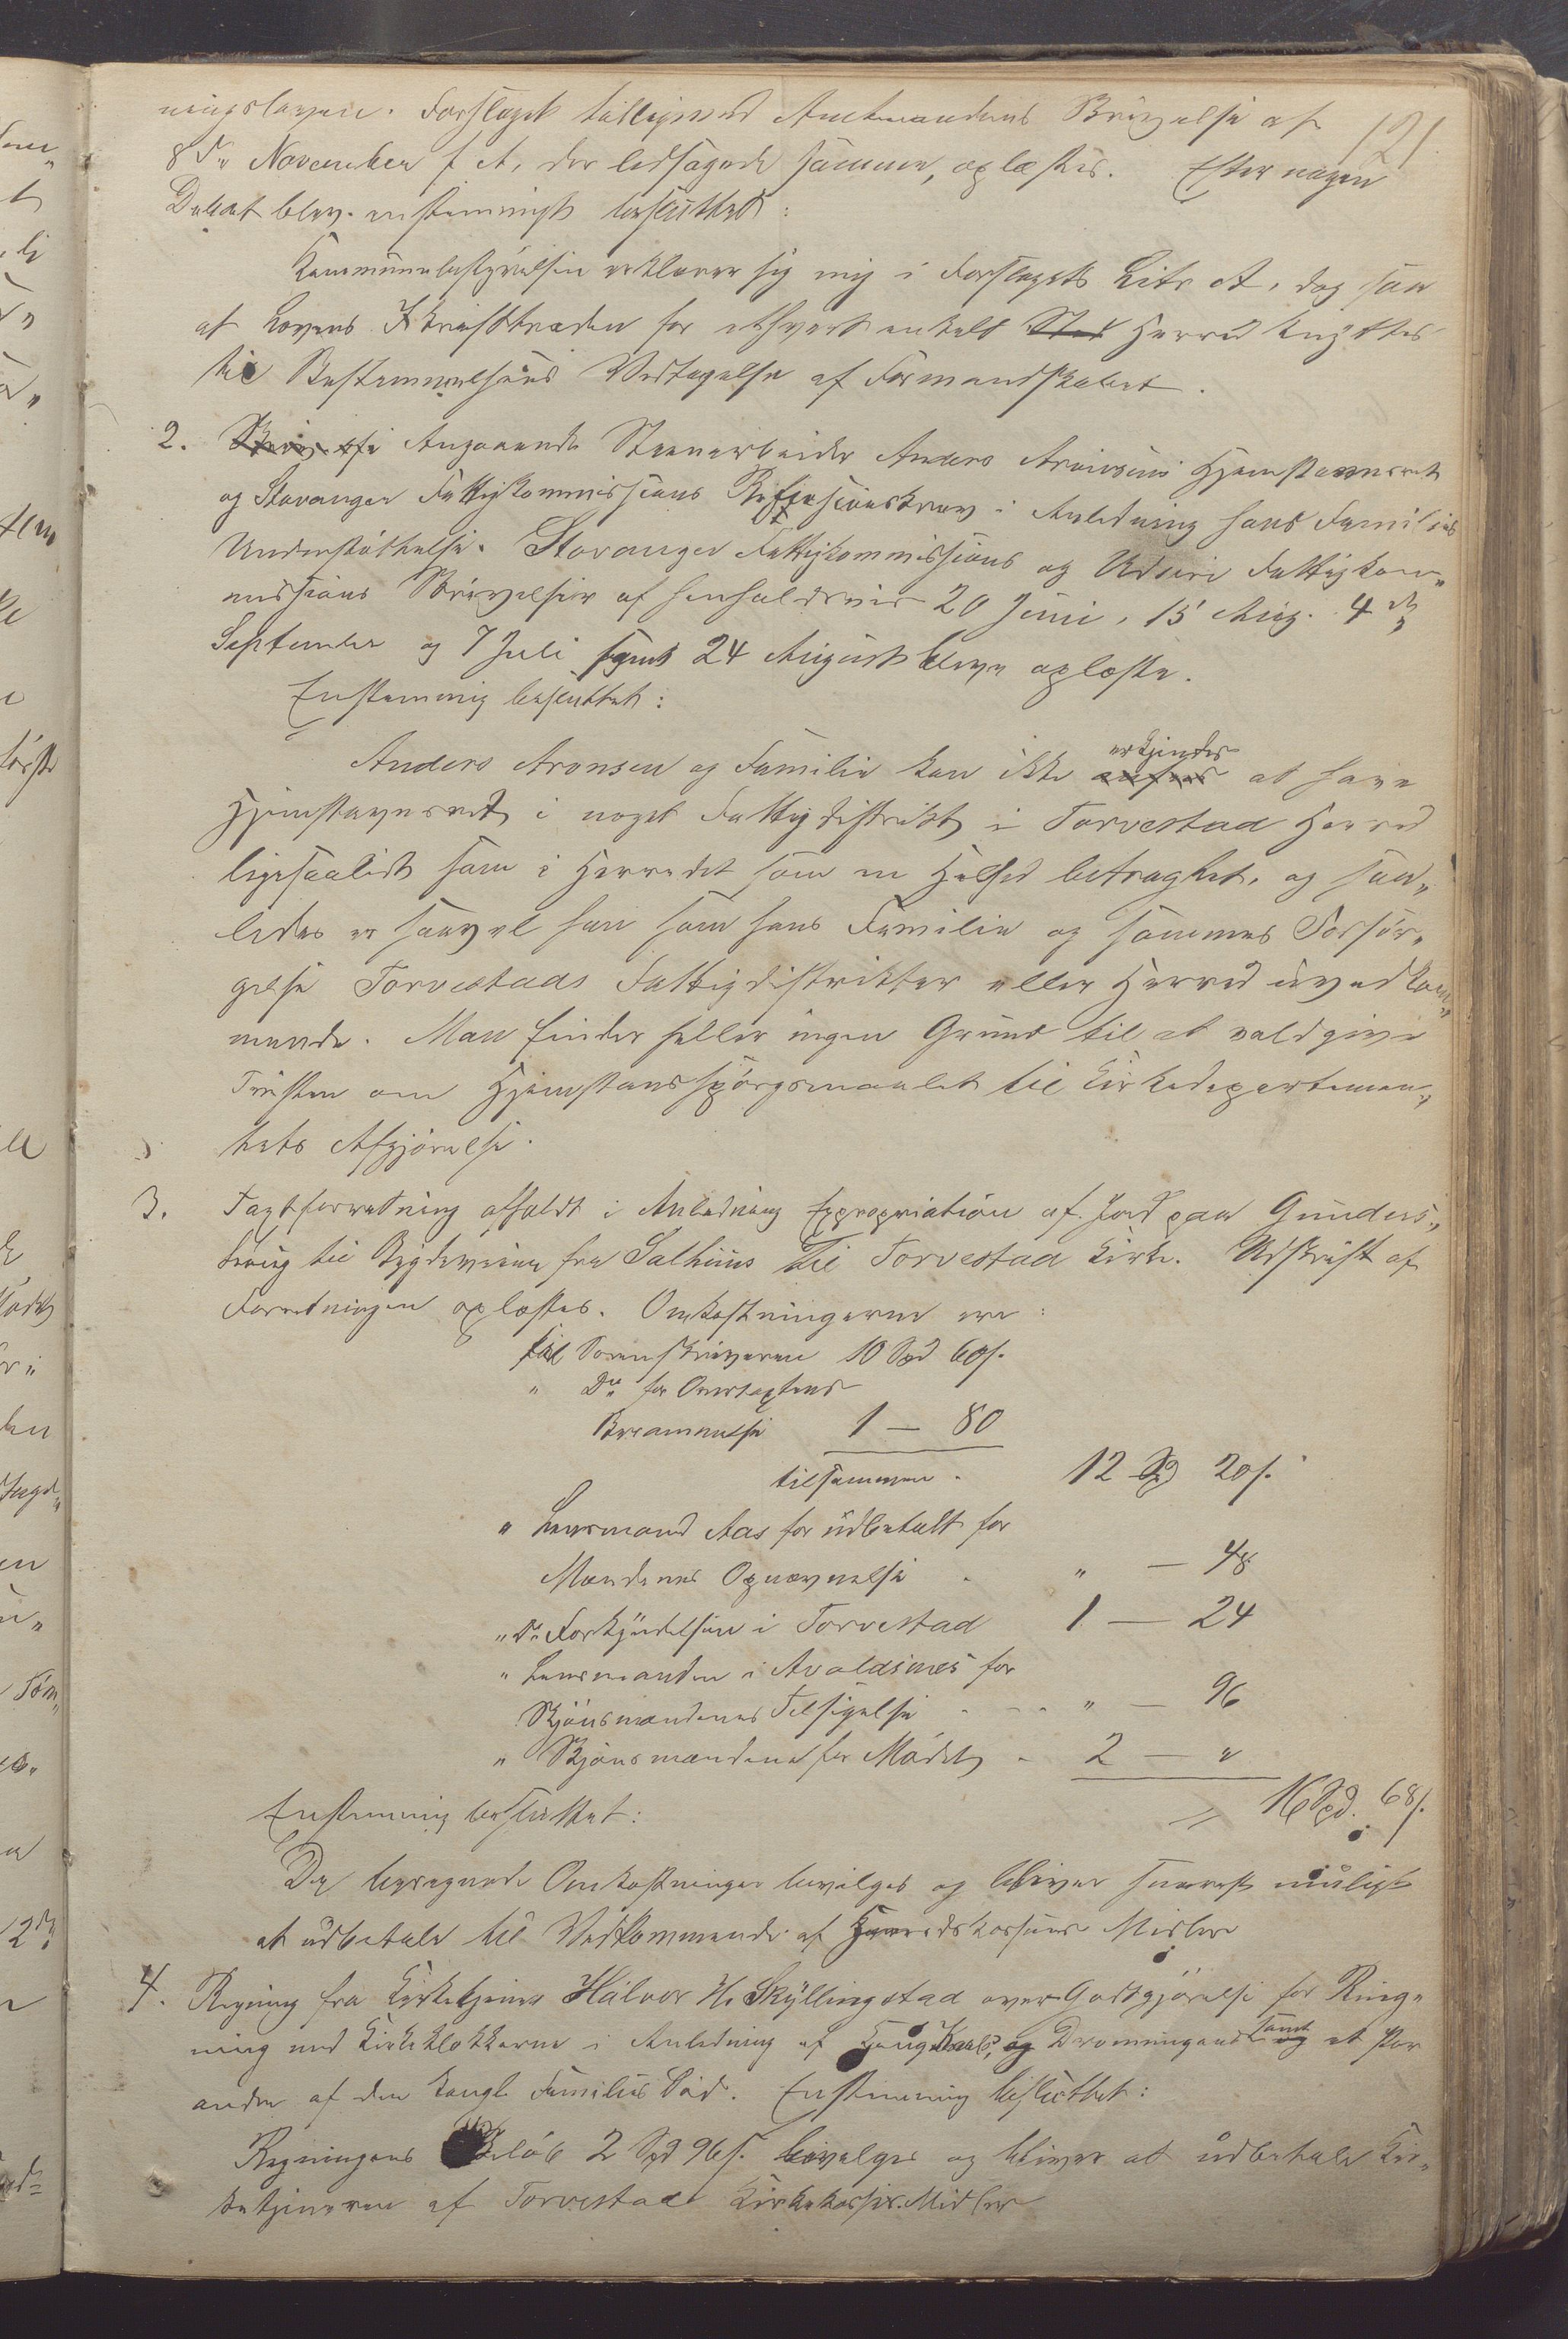 121.
ningsloven. Forslaget tilligemed Amtmandens Skrivelse af
8de November f. A. der ledsagede samme, oplæstes. Efter nogen
Debat blev enstemmigt besluttet:
Kommunebestyrelsen erklærer sig enig i Forslagets Litr A, dog saa
at Lovens Ikrafttræden for ethvert enkelt Sted Herred knyttes
til Bestemmelsens Vedtagelse af Formandskabet.
2. Skrivelse Angaaende Steenarbeider Anders Aronsens Hjemstavnsret
og Stavanger Fattigkommissions Refusionskrav i Anledning hans Families
Understøttelse. Stavanger Fattigkommissions og Utsire Fattigkom-
missions Skrivelser af henholdsvis 20 Juni, 15 Aug. 4de
September og 7 Juli samt 24 August bleve oplæste.
Enstemmig besluttet:
Anders Aronsen og Familie kan ikke ansees erkjendes at have
Hjemstavnsret i noget Fattigdistrikt i Torvestad Herred
ligesaalidt som i Herredet som en Helhed betragtet, og saa-
ledes er saavel han som hans Familie og sammes Forsør-
gelse Torvestads Fattigdistrikter eller Herred uvedkom-
mende. Man finder heller ingen Grund til at voldgive
Tvisten om Hjemstavnsspørgsmaalet til Kirkedepartemen-
tets Afgjørelse.
3. Taxtforretning afholdt i Anledning Expropriation af Jord paa Gunders-
haug til Bygdeveien fra Salhuus til Torvestad Kirke. Udskrift af
Forretningen oplæstes. Omkostningerne ere:
til Sorenskriveren 10 Spd 60 s.
" Do for Overtaxtens
Berammelse 1 — 80
tilsammen . 12 Spd 20 s.
" Lensmand Aas for udbetalt for
Mændenes Opnævnelse . " — 48
" Do Forkyndelsen i Torvestad 1 — 24
" Lensmanden i Avaldsnes for
Skjønsmændenes Tilsigelse . - - " — 96
" Skjønsmændene for Mødet . 2 — "
16 Spd. 68 s.
Enstemmig besluttet:
De beregnede Omkostninger bevilges og bliver snarest muligt
at udbetale til Vedkommende af Herredskassens Midler
4. Regning fra Kirketjener Halvor H. Skyllingstad over Godtgjørelse for Ring-
ning med Kirkeklokkerne i Anledning af Kong Karls, og Dronningens samt og et Par
andre af den kongl. Families Død. Enstemmig besluttet:
Regningens Beløb 2 Spd 96 s. bevilges og bliver at udbetale Kir-
ketjeneren af Torvestad Kirkekasses Midler